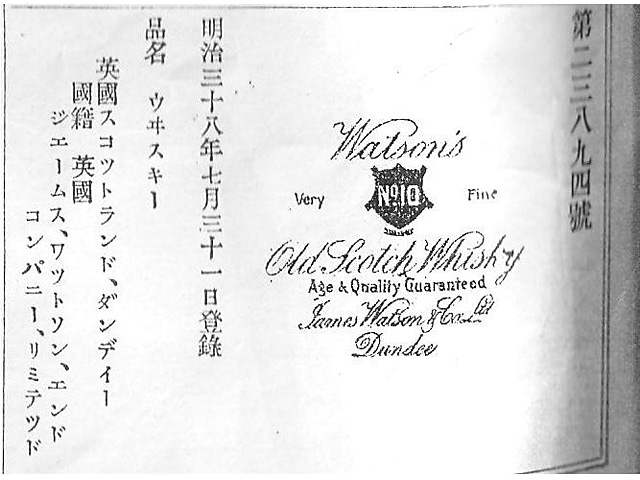 第二三八九四號
Watson's
Very No10 Fine
Old Scotch Whisky
Age & Quality Guaranteed
James Watson & Co. Ltd
Dundee
明治三十八年七月三十一日登錄
品名 ウヰスキー
英國スコツトランド、ダンデイー
國籍 英國
ジエームス、ワツトソン、エンド
コンパニー、リミテツド